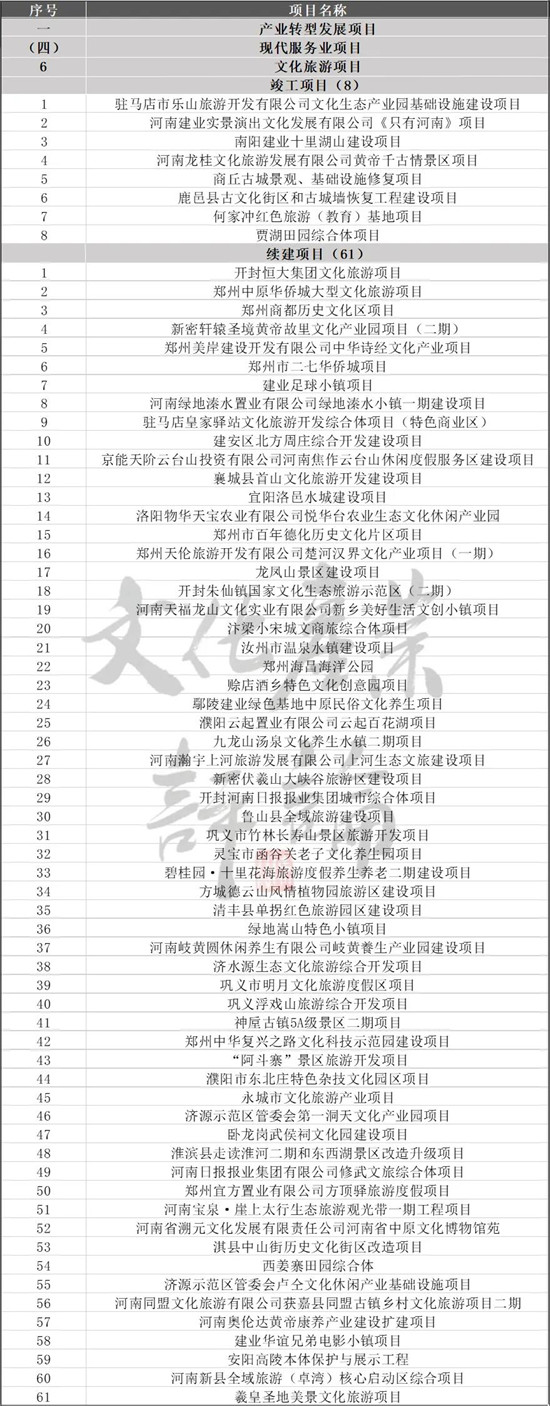 序号 项目名称
一 产业转型发展项目
（四） 现代服务业项目
6 文化旅游项目
竣工项目（8）
1 驻马店市乐山旅游开发有限公司文化生态产业园基础设施建设项目
2 河南建业实景演出文化发展有限公司《只有河南》项目
3 南阳建业十里湖山建设项目
4 河南龙桂文化旅游发展有限公司黄帝千古情景区项目
5 商丘古城景观、基础设施修复项目
6 鹿邑县古文化街区和古城墙恢复工程建设项目
7 何家冲红色旅游（教育）基地项目
8 贾湖田园综合体项目
续建项目（61）
1 开封恒大集团文化旅游项目
2 郑州中原华侨城大型文化旅游项目
3 郑州商都历史文化区项目
4 新密轩辕圣境黄帝故里文化产业园项目（二期）
5 郑州美岸建设开发有限公司中华诗经文化产业项目
6 郑州市二七华侨城项目
7 建业足球小镇项目
8 河南绿地溱水置业有限公司绿地溱水小镇一期建设项目
9 驻马店皇家驿站文化旅游开发综合体项目（特色商业区）
10 建安区北方周庄综合开发建设项目
11 京能天阶云台山投资有限公司河南焦作云台山休闲度假服务区建设项目
12 襄城县首山文化旅游开发建设项目
13 宜阳洛邑水城建设项目
14 洛阳物华天宝农业有限公司悦华台农业生态文化休闲产业园
15 郑州市百年德化历史文化片区项目
16 郑州天伦旅游开发有限公司楚河汉界文化产业项目（一期）
17 龙凤山景区建设项目
18 开封朱仙镇国家文化生态旅游示范区（二期）
19 河南天福龙山文化实业有限公司新乡美好生活文创小镇项目
20 汴梁小宋城文商旅综合体项目
21 汝州市温泉水镇建设项目
22 郑州海昌海洋公园
23 赊店酒乡特色文化创意园项目
24 鄢陵建业绿色基地中原民俗文化养生项目
25 濮阳云起置业有限公司云起百花湖项目
26 九龙山汤泉文化养生水镇二期项目
27 河南瀚宇上河旅游发展有限公司上河生态文旅建设项目
28 新密伏羲山大峡谷旅游区建设项目
29 开封河南日报报业集团城市综合体项目
30 鲁山县全域旅游建设项目
31 巩义市竹林长寿山景区旅游开发项目
32 灵宝市函谷关老子文化养生园项目
33 碧桂园·十里花海旅游度假养生养老二期建设项目
34 方城德云山风情植物园旅游区建设项目
35 清丰县单拐红色旅游园区建设项目
36 绿地嵩山特色小镇项目
37 河南岐黄圆休闲养生有限公司岐黄養生产业园建设项目
38 济水源生态文化旅游综合开发项目
39 巩义市明月文化旅游度假区项目
40 巩义浮戏山旅游综合开发项目
41 神垕古镇5A级景区二期项目
42 郑州中华复兴之路文化科技示范园建设项目
43 “阿斗寨”景区旅游开发项目
44 濮阳市东北庄特色杂技文化园区项目
45 永城市文化旅游产业项目
46 济源示范区管委会第一洞天文化产业园项目
47 卧龙岗武侯祠文化园建设项目
48 淮滨县走读淮河二期和东西湖景区改造升级项目
49 河南日报报业集团有限公司修武文旅综合体项目
50 郑州宜方置业有限公司方顶驿旅游度假项目
51 河南宝泉·崖上太行生态旅游观光带一期工程项目
52 河南省溯元文化发展有限责任公司河南省中原文化博物馆苑
53 淇县中山街历史文化街区改造项目
54 西姜寨田园综合体
55 济源示范区管委会卢仝文化休闲产业基础设施项目
56 河南同盟文化旅游有限公司获嘉县同盟古镇乡村文化旅游项目二期
57 河南奥伦达黄帝康养产业建设扩建项目
58 建业华谊兄弟电影小镇项目
59 安阳高陵本体保护与展示工程
60 河南新县全域旅游（卓湾）核心启动区综合项目
61 羲皇圣地美景文化旅游项目
文化产业
評論